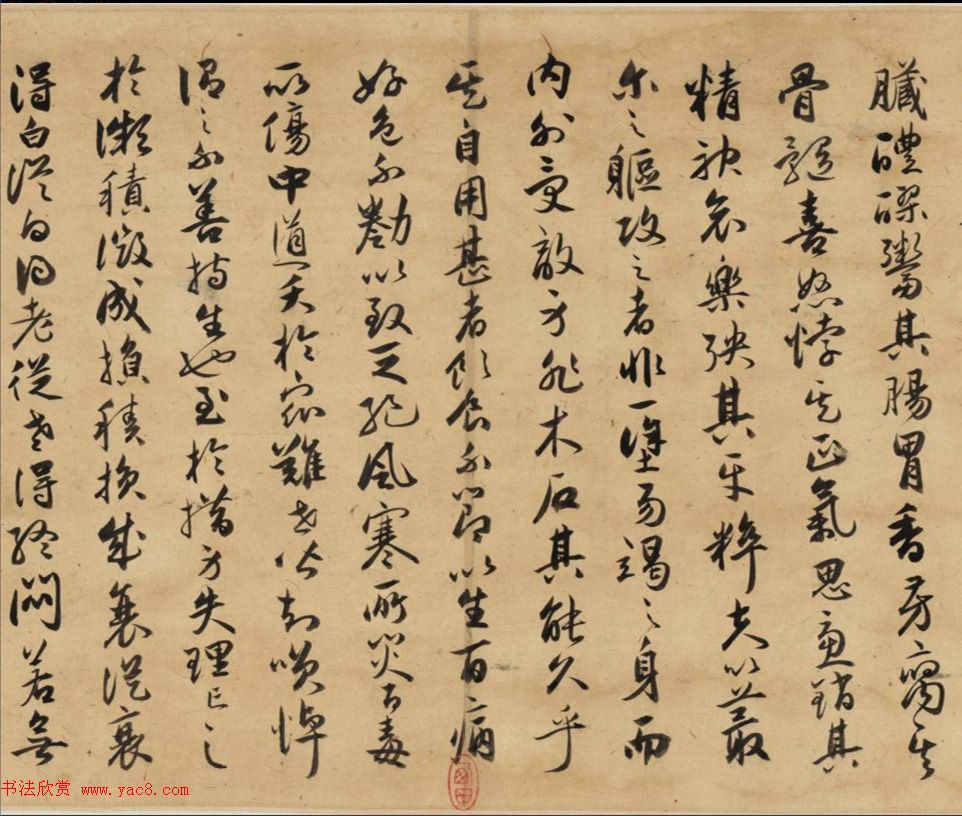 臓醴醪鬻其腸胃香芳腐其
骨髓喜怒悖其正氣思慮銷其
精神哀樂殃其平粹夫以蕞
尔之軀攻之者非一塗易竭之身而
内外受敵身非木石其能久乎
其自用甚者飲食不節以生百病
好色不勌以致乏絶風寒所災百毒
所傷中道夭於衆難世皆知咲悼
謂之不善持生也至於措身失理亡之
於微積微成損積損成衰從衰
得白從白得老從老得終悶若無
书法欣赏 www.yac8.com